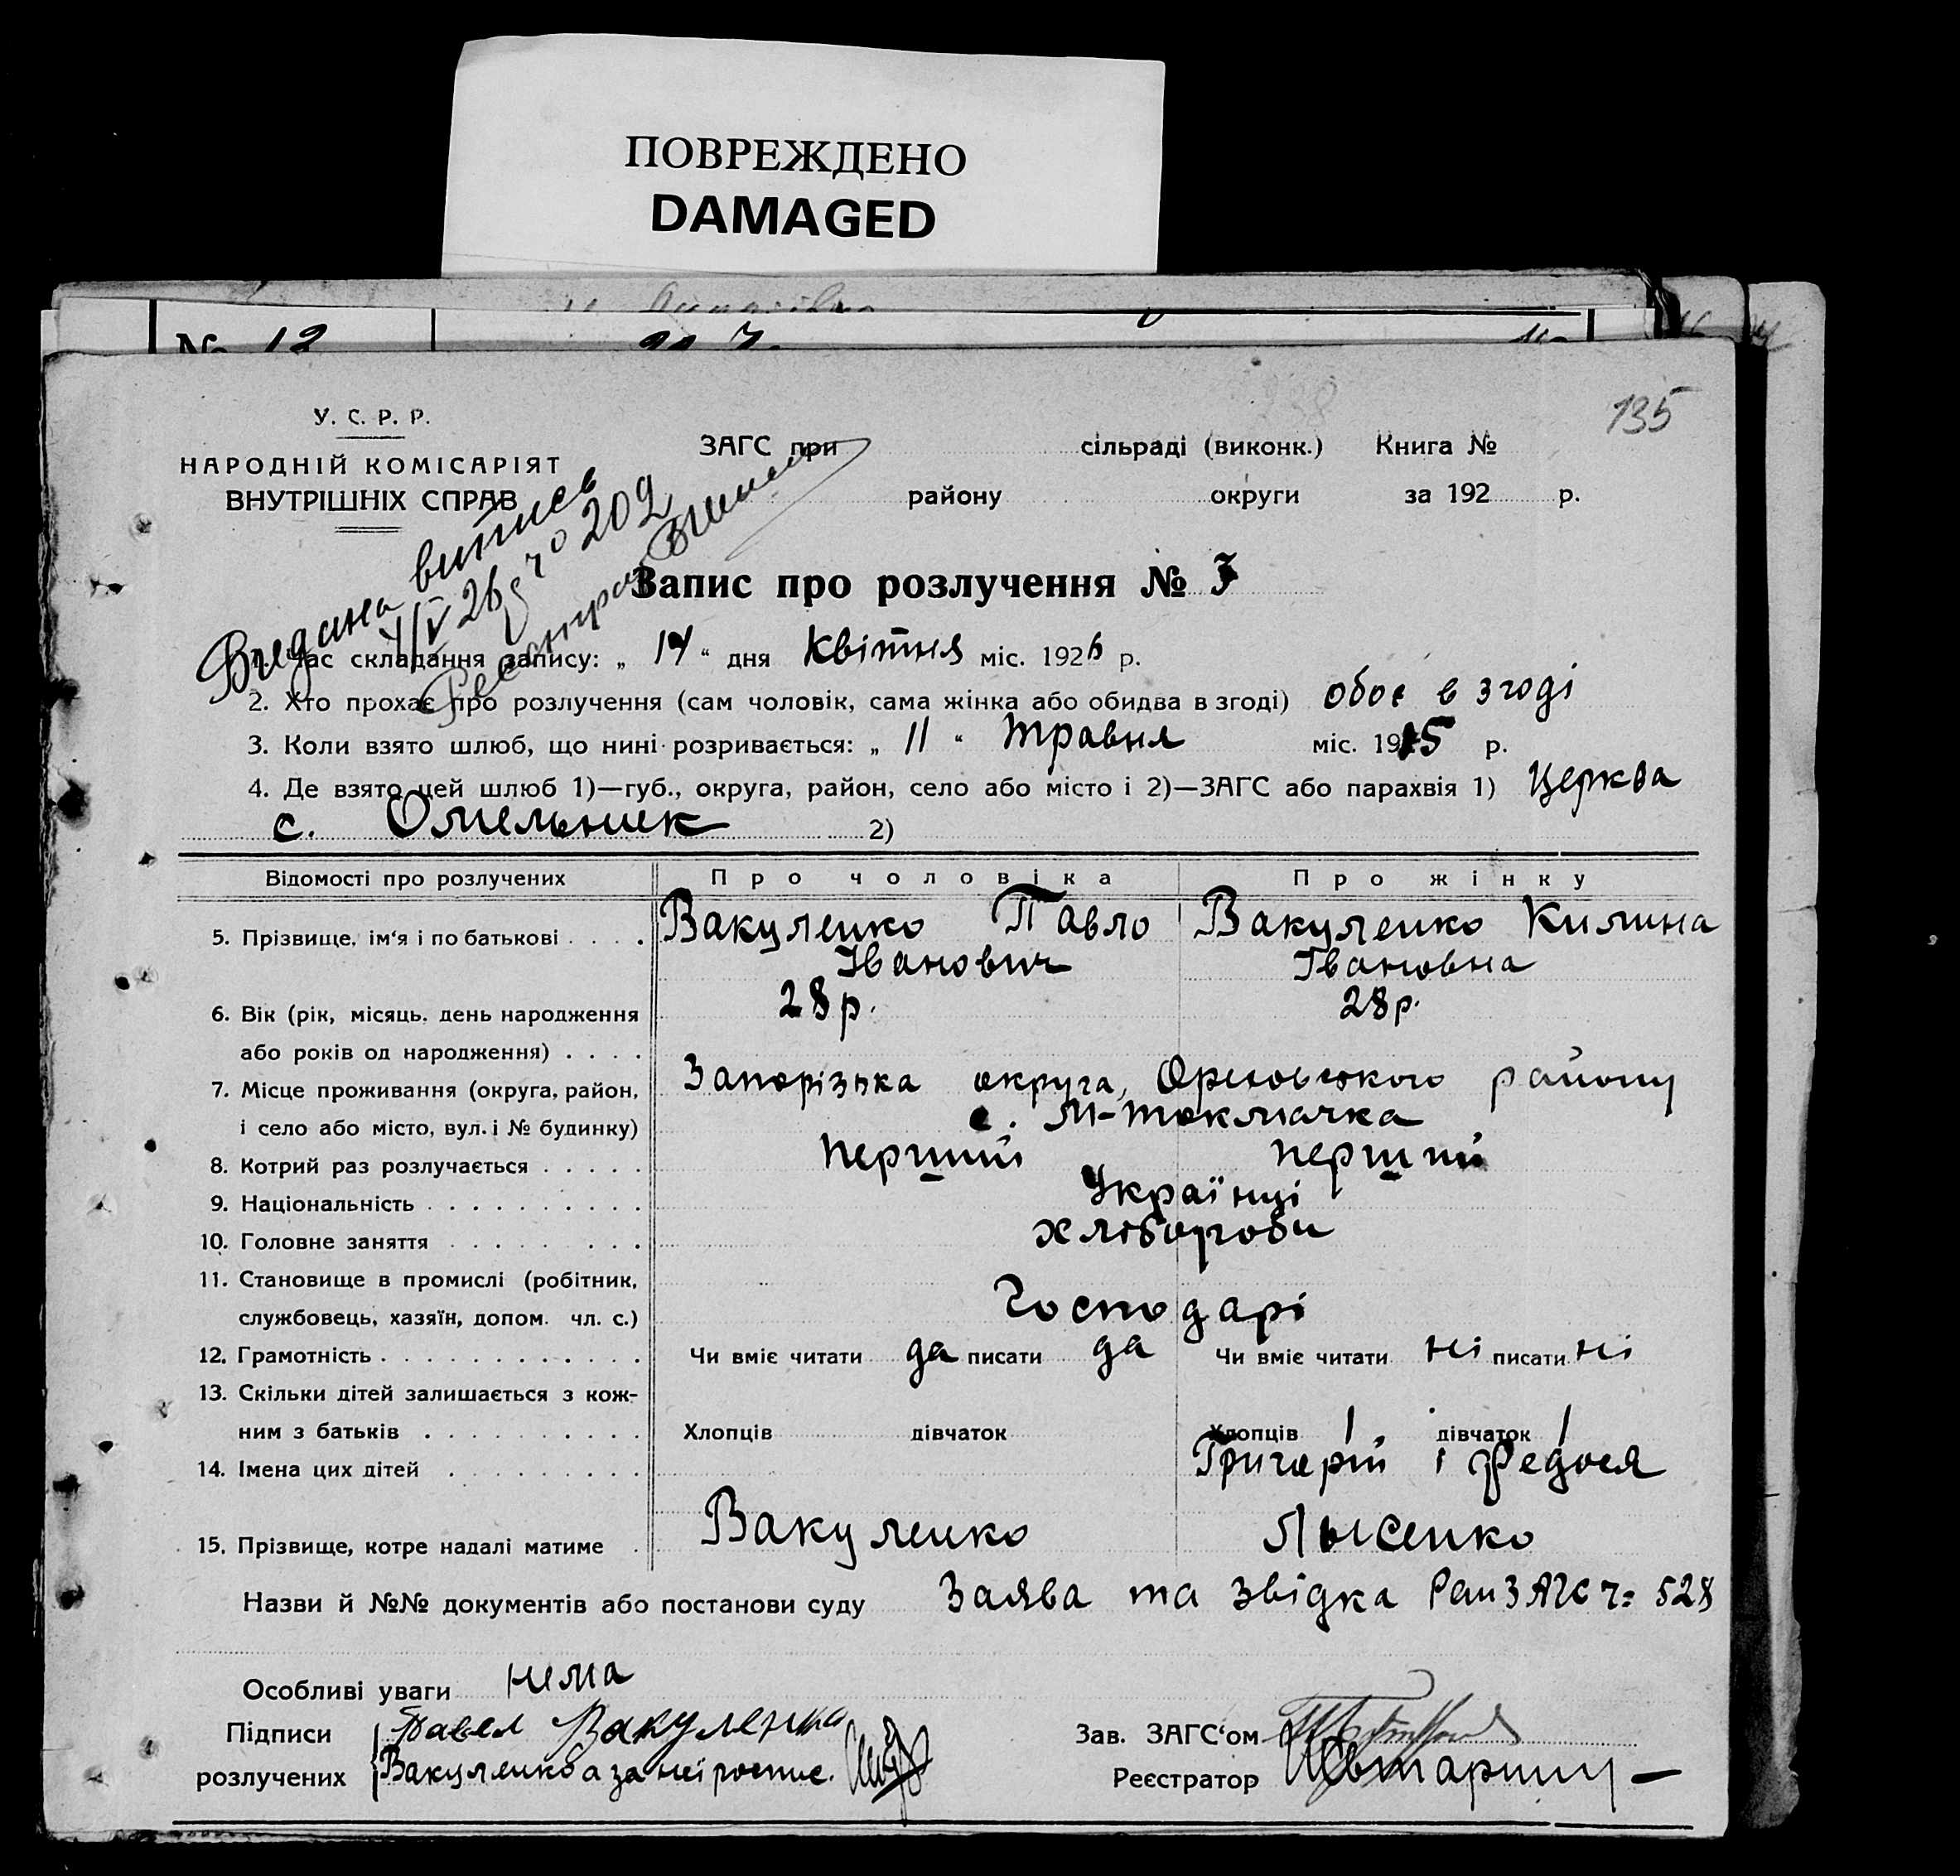 ПОВРЕЖДЕНО
DAMAGED
№ 12
135
У. С. Р. Р.
НАРОДНІЙ КОМІСАРІЯТ
ВНУТРІШНІХ СПРАВ
ЗАГС при сільраді (виконк.) Книга №
району округи за 192 р.
витпись
26 ч° 202
Запис про розлучення № 3
1. Час складання запису: „ 14 “ дня Квітня міс. 1926 р.
2. Хто прохає про розлучення (сам чоловік, сама жінка або обидва в згоді) обоє в згоді
3. Коли взято шлюб, що нині розривається: „ 11 “ травня міс. 1915 р.
4. Де взято цей шлюб 1)—губ., округа, район, село або місто і 2)—ЗАГС або парахвія 1) Церква
с. Омельник 2)
Відомості про розлучених Про чоловіка Про жінку
5. Прізвище, ім‘я і по батькові . . . . Вакуленко Павло Вакуленко Килина
Іванович Івановна
6. Вік (рік, місяць, день народження 28 р. 28 р.
або років од народження) . . . .
7. Місце проживання (округа, район, Запорізька округа, Оріховського району
і село або місто, вул. і № будинку) с. М-Токмачка
8. Котрий раз розлучається . . . . . перший перший
9. Національність . . . . . . . . . . Українці
10. Головне заняття . . . . . . . . хлібороби
11. Становище в промислі (робітник,
службовець, хазяїн, допом. чл. с.) Господарі
12. Грамотність . . . . . . . . . . . . Чи вміє читати да писати да Чи вміє читати ні писати ні
13. Скільки дітей залишається з кож-
ним з батьків . . . . . . . . . . Хлопців дівчаток Хлопців 1 дівчаток 1
14. Імена цих дітей . . . . . . . . . Григорій і Федося
15. Прізвище, котре надалі матиме . Вакуленко Лысенко
Назви й №№ документів або постанови суду Заява та звідка РайЗАГС ч= 528
Особливі уваги нема
Підписи Павел Вакуленко
розлучених Вакуленкова за неї роспис.
Зав. ЗАГС‘ом
Реєстратор